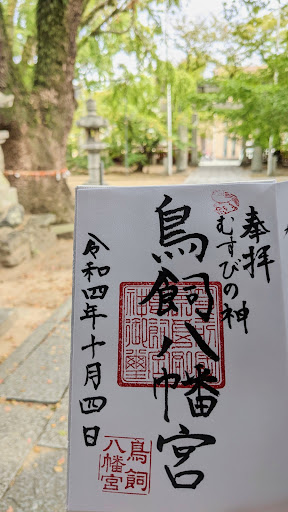 奉拝
むすびの神
鳥飼八幡宮
令和四年十月四日
鳥飼
八幡宮